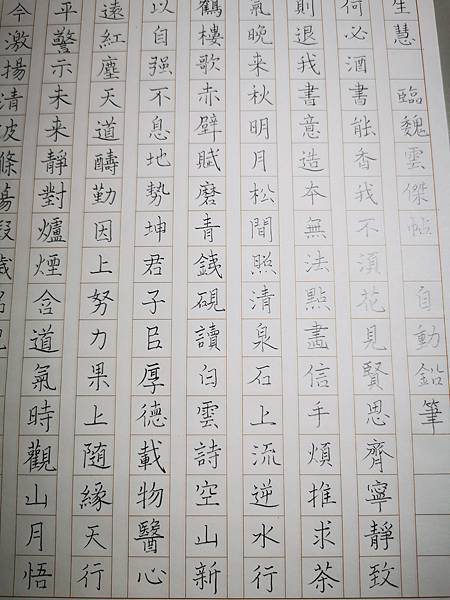 生慧 臨魏雲傑帖 自動鉛筆
何必酒書能香我不須花見賢思齊寧靜致
則退我書意造本無法點畫信手煩推求茶
氣晚來秋明月松間照清泉石上流逆水行
鶴樓歌赤壁賦磨青鐵硯讀白雲詩空山新
以自强不息地勢坤君子㠯厚德載物醫心
遠紅塵天道醻勤因上努力果上隨緣天行
平警示未來靜對爐煙含道氣時觀山月悟
今激揚清波